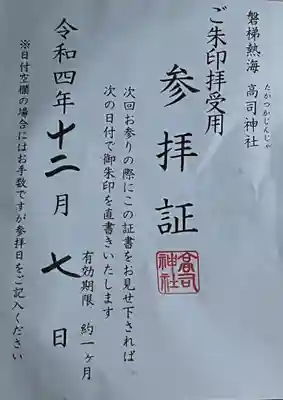 磐梯熱海 高司神社
たかつかじんじゃ
ご朱印拝受用
参拝証
高司神社
次回お参りの際にこの証書をお見せ下されば
次の日付で御朱印を直書きいたします
有効期限 約一ヶ月
令和四年十二月七日
※日付空欄の場合にはお手数ですが参拝日をご記入ください